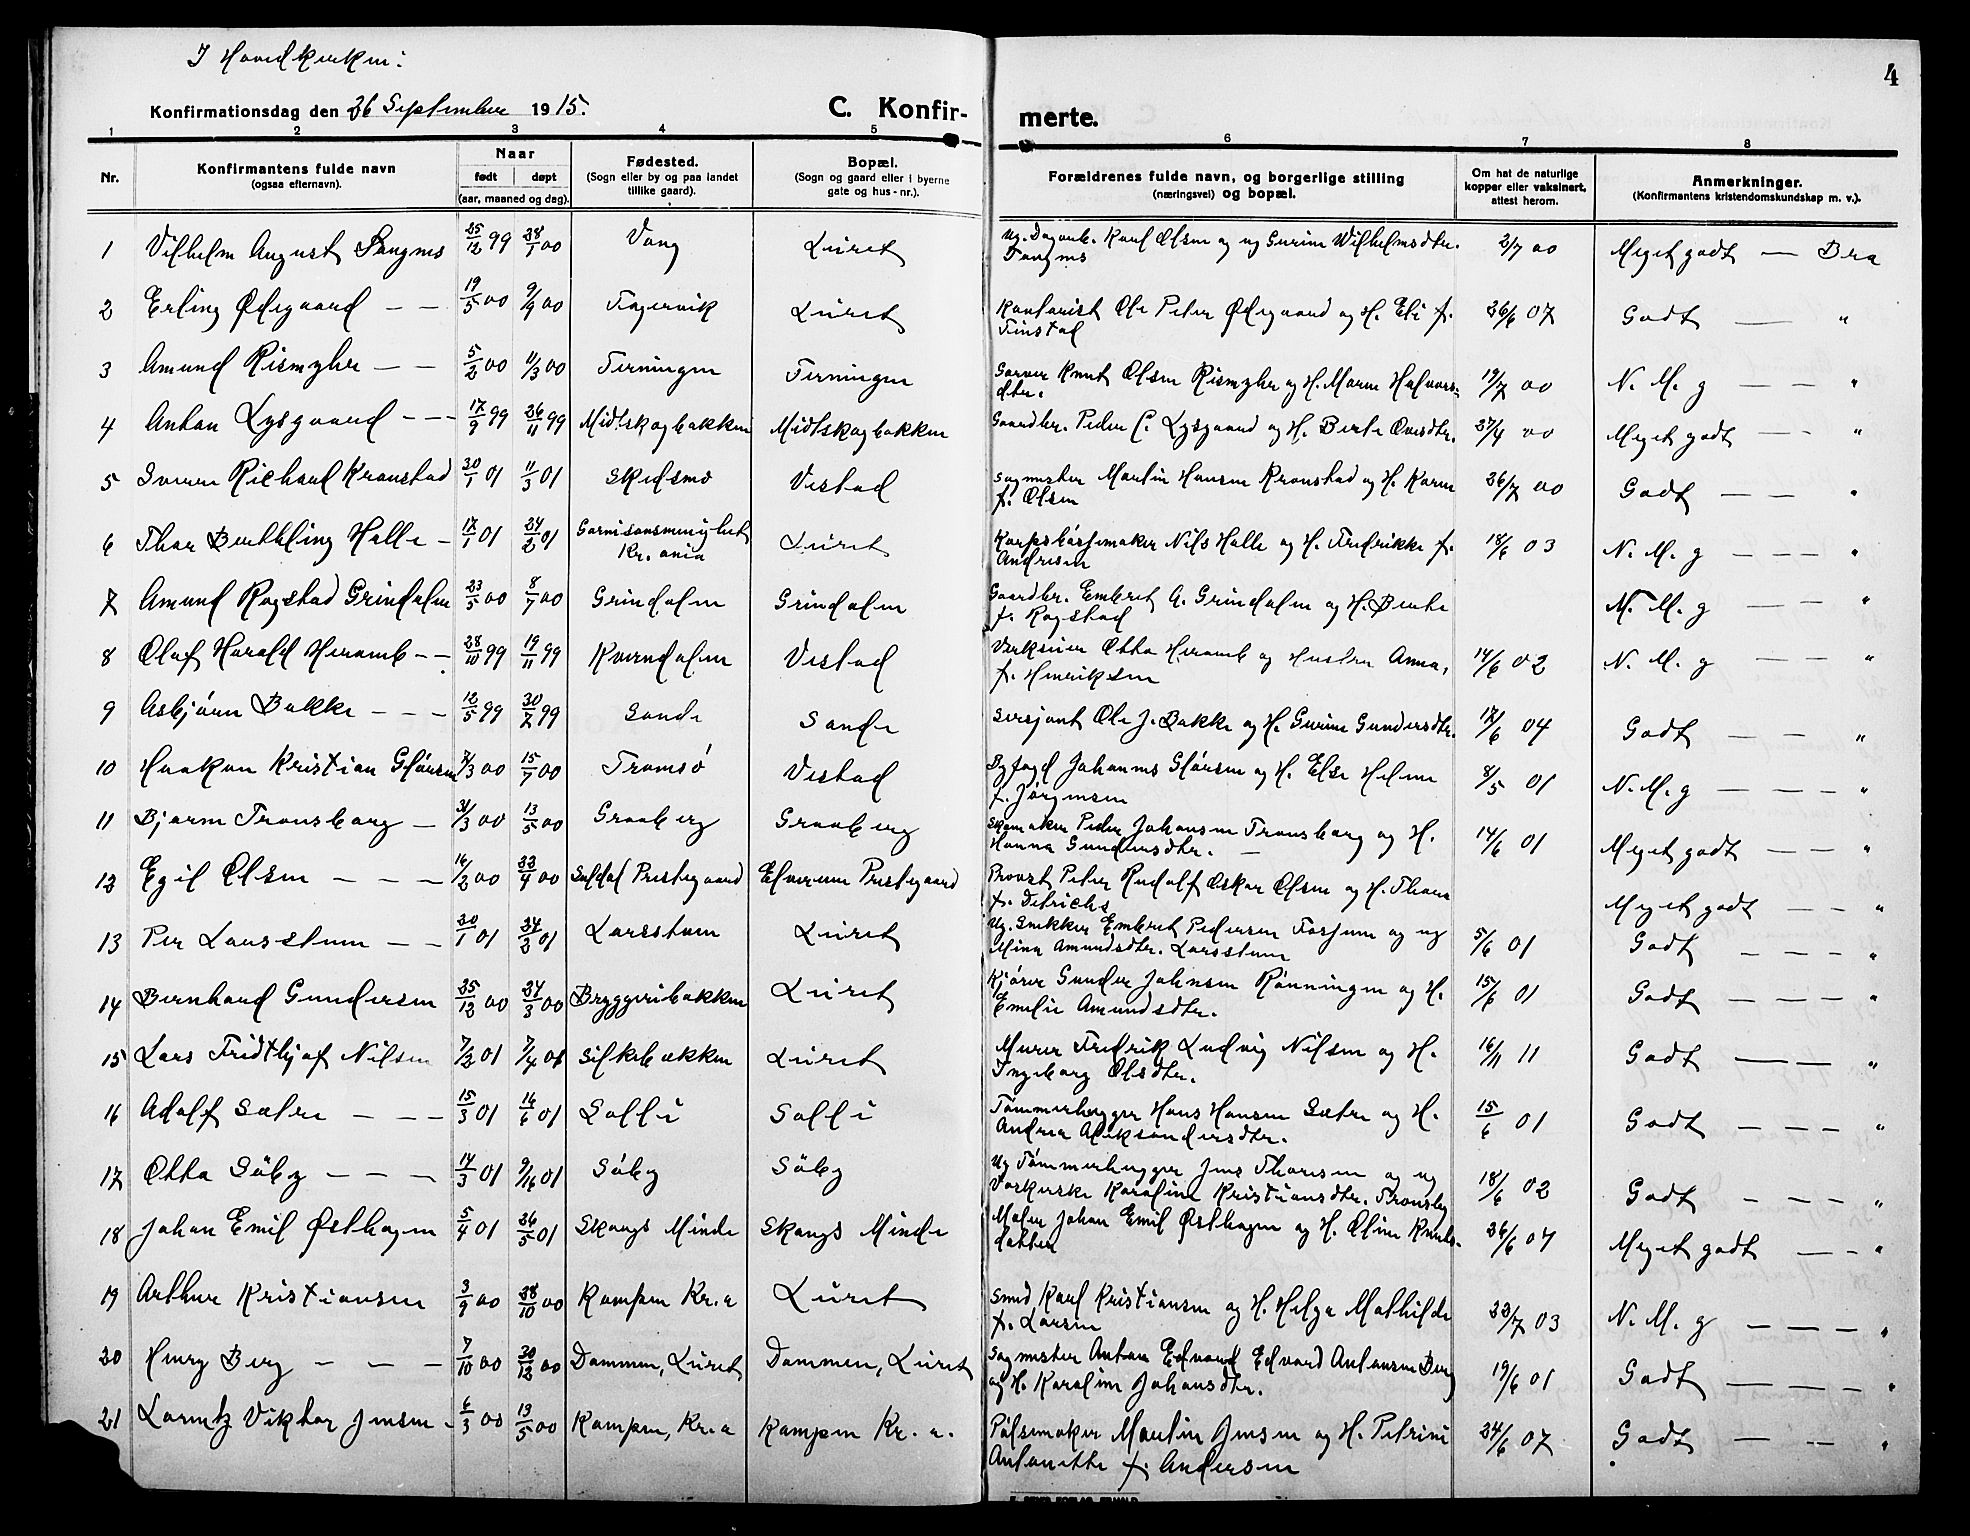 I Hovedkirken:
4
Konfirmationsdag den 26 September 1915.
C. Konfir-
merte.
1 2 3 4 5 6 7 8
Nr.
Konfirmantens fulde navn
(ogsaa efternavn).
Naar
født døpt
(aar, maaned og dag).
Fødested.
(Sogn eller by og paa landet
tillike gaard).
Bopæl.
(Sogn og gaard eller i byerne
gate og hus-nr.).
Forældrenes fulde navn, og borgerlige stilling
(næringsvei) og bopæl.
Om hat de naturlige
kopper eller vaksinert,
attest herom.
Anmerkninger.
(Konfirmantens kristendomskundskap m. v.).
1 Vilhelm August Tangnes 25/12 99 28/1 00 Vang Lüret Ug. Dagarb. Karl Olsen og ug Gurine Wilhelmsdtr. 2/7 00 Meget godt — Bra
Tangnes
2 Erling Ødegaard — — 19/5 00 9/9 00 Fagervik Lüret Kontorist Ole Peter Ødegaard og H. Eli f. 26/6 07 Godt — "
Finstad
3 Amund Rismyhr — — 5/2 00 11/3 00 Terningen Terningen Garver Knut Olsen Rismyhr og H. Maren Halvors- 19/7 00 N. M. g — — "
dtr.
4 Anton Lysgaard — — — 17/9 99 26/11 99 Midtskogbakken Midtskogbakken Gaardbr. Peder C. Lysgaard og H. Berte Ovesdtr. 27/4 00 Meget godt — — "
5 Sverre Richard Kronstad 30/1 01 11/3 01 Skedsmo Vestad Sagmester Martin Hansen Kronstad og H. Karen 26/7 00 Godt — — "
f. Olsen
6 Thor Berthling Helle — 17/1 01 24/2 01 Garnisonsmenighet Lüret Korpsbøssemaker Nils Helle og H. Fredrikke f. 18/6 03 N. M. g — — — "
Kr.ania Andresen
7 Amund Rogstad Grindalen 23/5 00 8/7 00 Grindalen Grindalen Gaardbr. Embret A. Grindalen og H. Berte M. M. g — — "
f. Rogstad
8 Olaf Harald Heramb — — 28/10 99 19/11 99 Kverndalen Vestad Verkseier Otto Heramb og Hustru Anna, 14/6 02 N. M. g — — "
f. Henriksen
9 Asbjørn Bakke — — — 12/5 99 30/7 99 Sande Sande Sersjant Ole J. Bakke og H. Gurine Gundersdtr. 17/6 04 Godt — — "
10 Haakon Kristian Glørsen 7/3 00 15/7 00 Tromsø Vestad Byfogd Johannes Glørsen og H. Else Helene 8/5 01 N. M. g — — — "
f. Jørgensen
11 Bjarne Tronsberg — 31/3 00 13/5 00 Graaberg Graaberg Skomaker Peder Johansen Tronsberg og H. 14/6 01 Meget godt — — "
Hanna Gundersdtr. —
12 Egil Olsen — — — 16/2 00 22/4 00 Suldal Prestegaard Elverum Prestegaard Provst Peter Rudolf Oskar Olsen og H. Thora Meget godt — — "
f. Detrichs
13 Per Larsstuen — — 30/1 01 24/2 01 Larsstuen Lüret Ug. Snekker Embret Pedersen Fosjum og ug 5/6 01 Godt — — — "
Mina Amundsdtr. Larsstuen
14 Bernhard Gundersen 25/12 00 24/3 00 Bryggeribakken Lüret Kjører Gunder Johnsen Rønningen og H. 15/6 01 Godt — — — "
Emelie Amundsdtr.
15 Lars Fridthjof Nilsen 7/2 01 7/4 01 Silkebækken Lüret Murer Fredrik Ludvig Nilsen og H. 16/11 11 Godt — — "
Ingeborg Olsdtr.
16 Adolf Sætre — — — 15/3 01 16/6 01 Solli Solli Tømmerhugger Hans Hansen Sætre og H. 15/6 01 Godt — — — "
Andrea Aleksandersdtr.
17 Otto Søby — — — 14/3 01 9/16 01 Søby Søby Ug Tømmerhugger Jens Thoresen og ug 18/6 02 Godt — — — "
Vaskerske Karoline Kristiansdtr. Tronsby
18 Johan Emil Østhagen 5/4 01 26/5 01 Skougs Minde Skougs Minde Maler Johan Emil Østhagen og H. Oline Knuts- 26/6 07 Meget godt — — "
datter
19 Arthur Kristiansen 3/9 00 28/10 00 Kampen Kr.a Lüret Smed Karl Kristiansen og H. Helga Mathilde 23/7 03 N. M. g — — — "
f. Larsen
20 Henry Berg — — — 7/10 00 30/12 00 Dammen, Lüret Dammen, Lüret Sagmester Anton Edvard Edvard Antonsen Berg 19/6 01 Godt — — — "
og H. Karoline Johansdtr.
21 Lorentz Viktor Jensen — 6/3 00 13/5 00 Kampen, Kr.a Kampen Kr. a. Pølsemaker Martin Jensen og H. Petrine 24/6 07 Godt — — "
Antonette f. Andersen